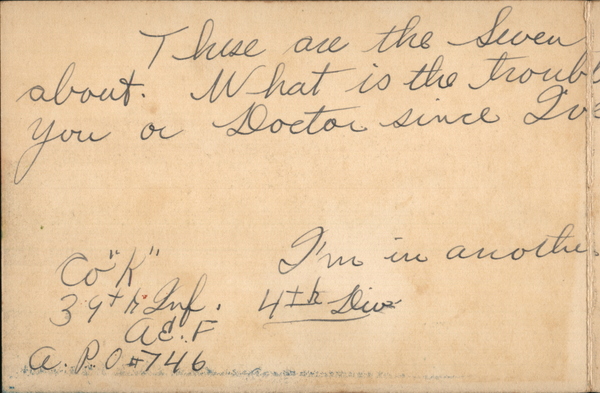 These are the Seven
about. What is the troubl
you or Doctor since I've
I'm in anothe
Co "K"
39th Inf.
4th Div
A.E.F
A.P.O #746